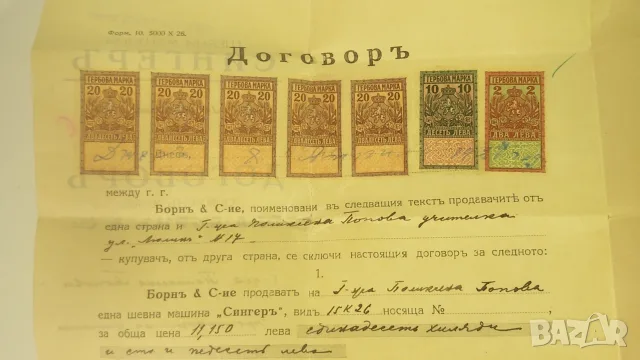 Форм. 10. 5000 X 26.
Договоръ
ГЕРБОВА МАРКА ГЕРБОВА МАРКА ГЕРБОВА МАРКА ГЕРБОВА МАРКА ГЕРБОВА МАРКА ГЕРБОВА МАРКА ГЕРБОВА МАРКА
20 20 20 20 20 20 20 20 20 20 10 10 2 2
ДВАДЕСЕТЬ ЛЕВА ДВАДЕСЕТЬ ЛЕВА ДВАДЕСЕТЬ ЛЕВА ДВАДЕСЕТЬ ЛЕВА ДВАДЕСЕТЬ ЛЕВА ДЕСЕТЬ ЛЕВА ДВА ЛЕВА
между г. г.
Борнъ & С-ие, поименовани въ следващия текстъ продавачитѣ отъ
една страна и Г-ца Попова учителка
ул. № 17
— купувачъ, отъ друга страна, се сключи настоящия договор за следното:
1.
Борнъ & С-ие продаватъ на Г-ца Попова
една шевна машина „Сингеръ", видъ 15К26 носяща №
за обща цена 11,150 лева единадесеть хиляди
и сто и педесеть лева
bazar.bg